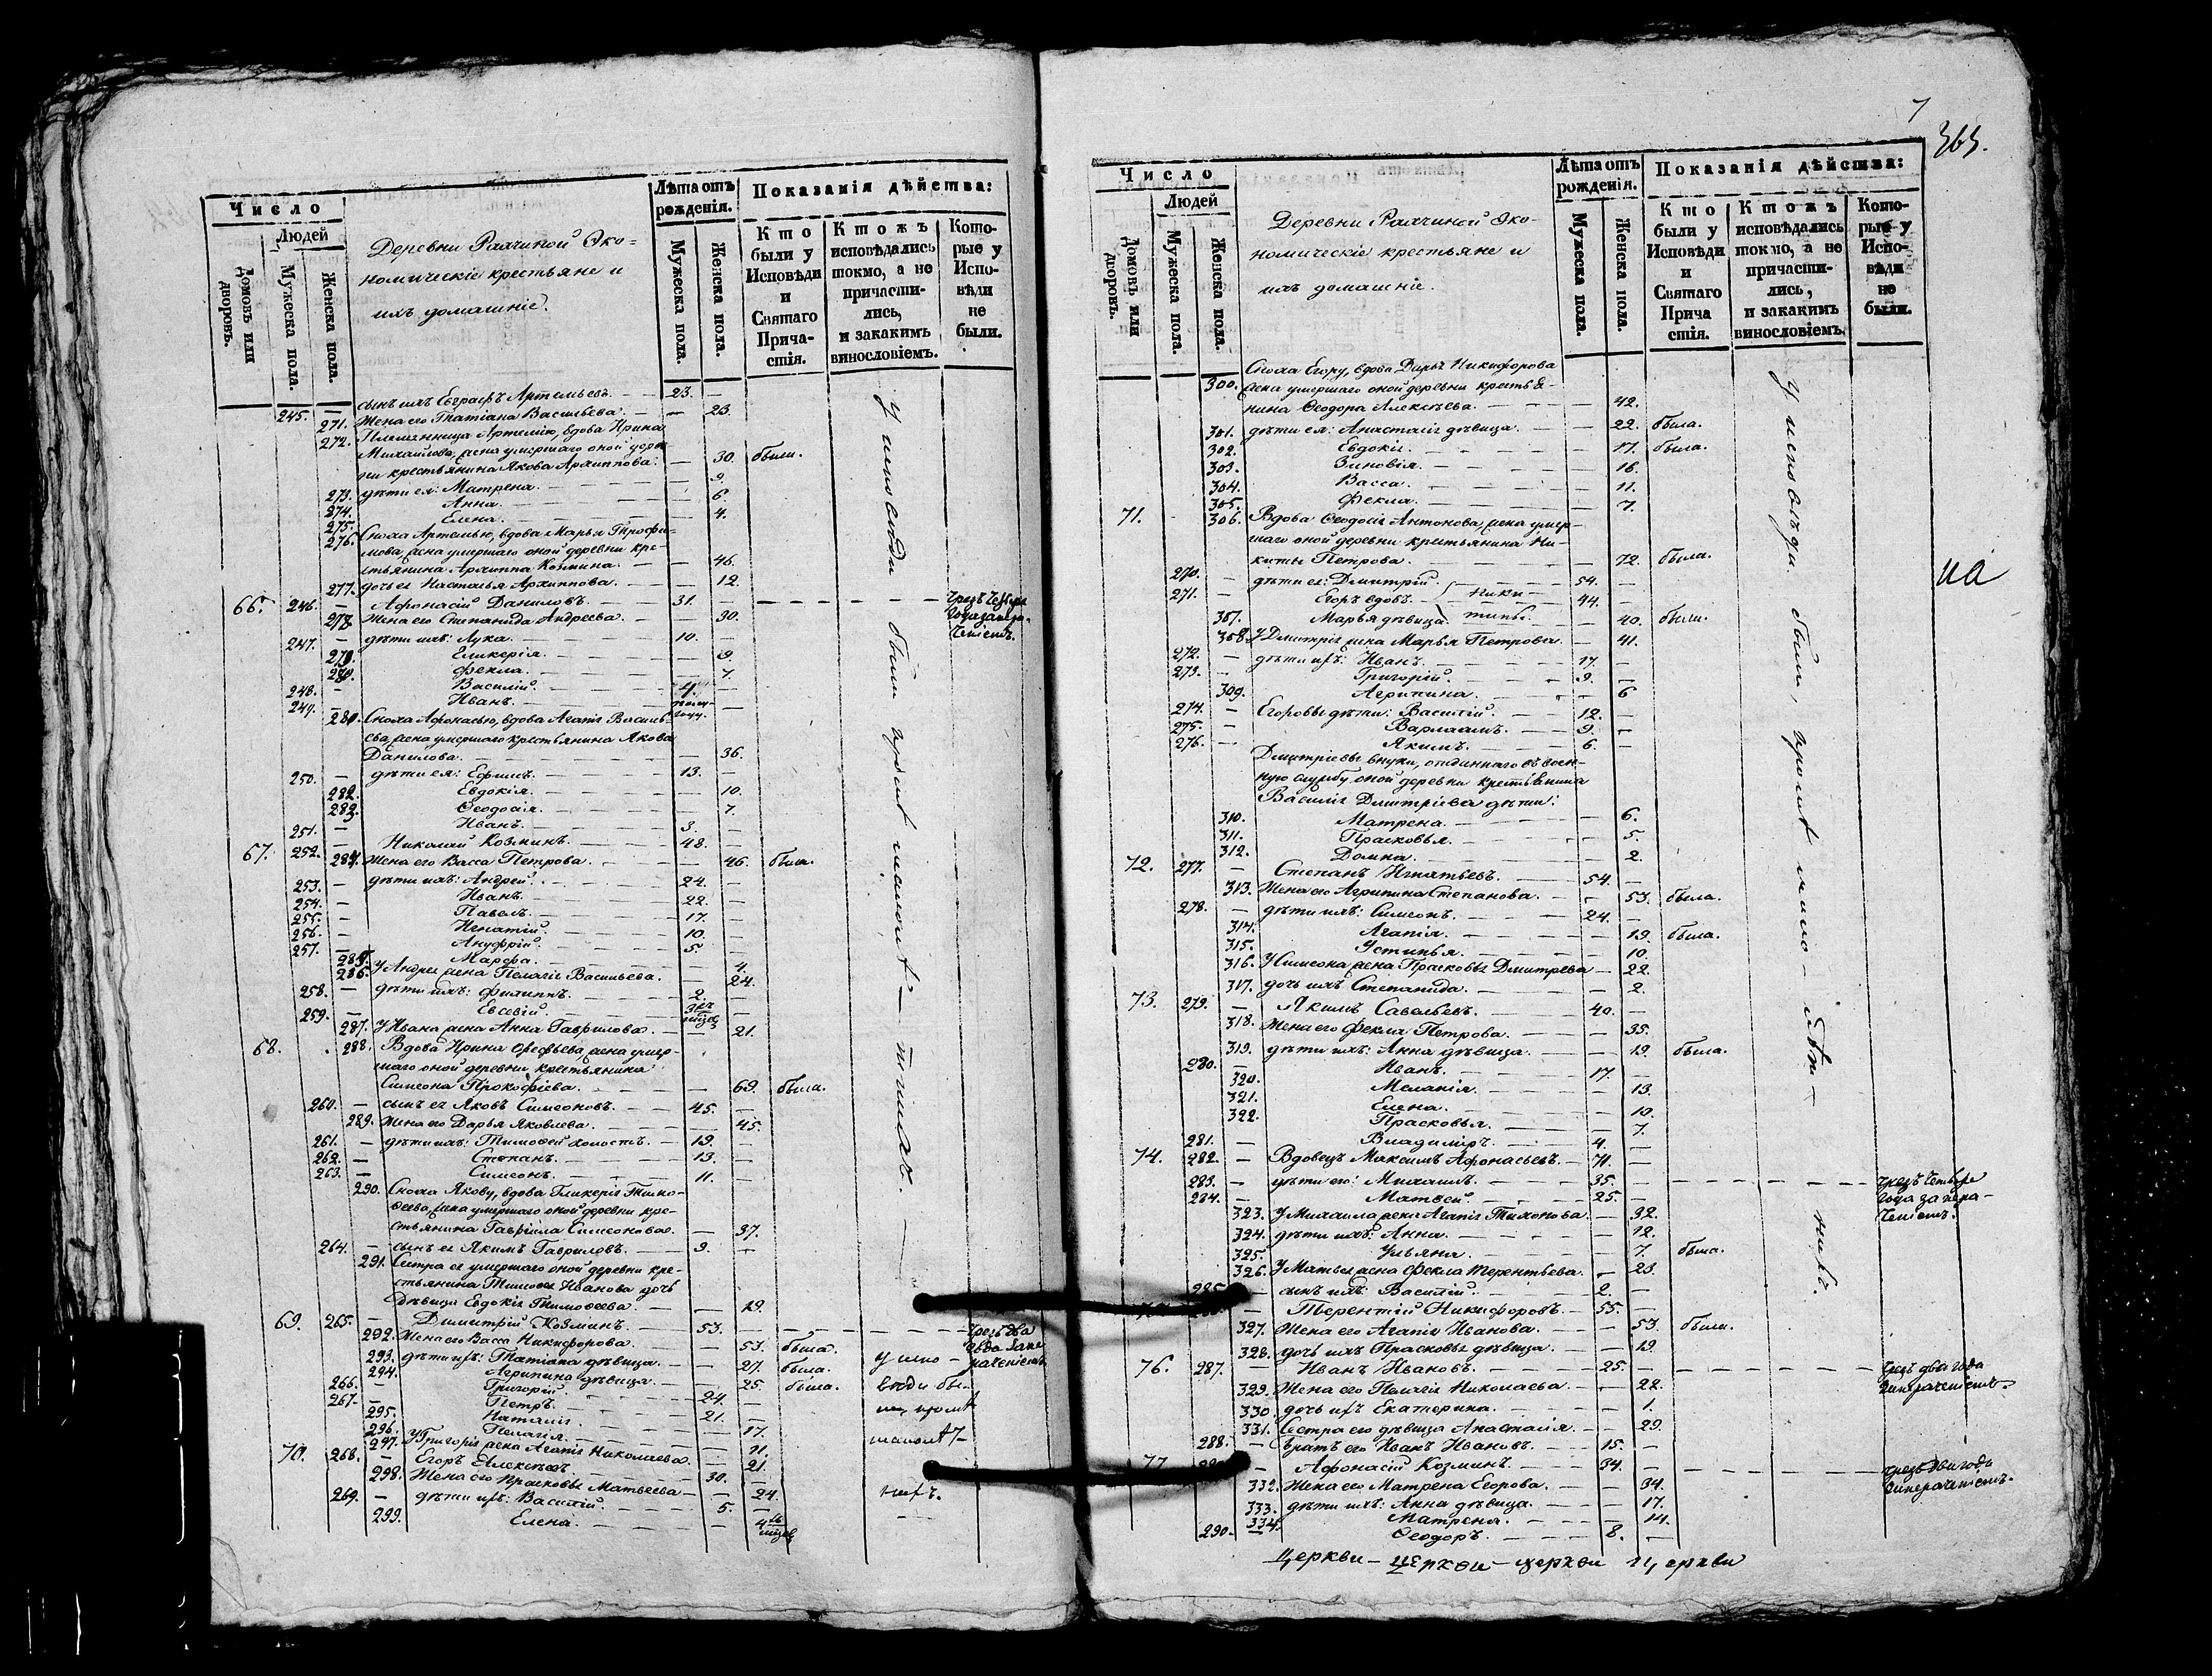 Число
Людей
Домовъ или дворовъ.
Мужеска пола.
Женска пола.
Деревни Рахчиной Эко-
номическіе крестьяне и
ихъ домашніе.
Лѣта отъ рожденія.
Мужеска пола.
Женска пола.
Показанія дѣйства:
Кто были у Исповѣди и Святаго Прича-стія.
Ктожъ исповѣдались токмо, а не причасти-лись, и закакимъ винословіемъ.
Кото-рые у Испо-вѣди не были.
245. — сынъ ихъ Евграфъ Артемьевъ. 23. —
271. Жена его Татіана Васильева. — 23.
272. Племянница Артемію, вдова Ирина
Михайлова, жена умершаго оной дерев-
ни крестьянина Якова Архиппова. — 30. были.
273. дѣти ея: Матрена. — 9.
274. Анна. — 6.
275. Елена. — 4.
276. Сноха Артемью, вдова Марья Трофи-
мова, жена умершаго оной деревни кре-
стьянина Архиппа Козмина. — 46.
277. дочь ея Настасья Архиппова. — 12.
66. 246. — Афонасій Даниловъ. 31. —
278. Жена его Степанида Андреева. — 30.
247. — дѣти ихъ: Лука. 10. —
279. Гликерія. — 9.
280. Фекла. — 7.
248. — Василій. 4. —
249. — Иванъ. —
281. Сноха Афонасью, вдова Агапія Василь-
ева, жена умершаго крестьянина Якова
Данилова. — 36.
250. — дѣти ея: Ефимъ. 13. —
282. Евдокія. — 10.
283. Ѳеодосія. — 7.
251. — Иванъ. 3. —
67. 252. — Николай Козминъ. 48. —
284. Жена его Васса Петрова. — 46. была.
253. — дѣти ихъ: Андрей. 24. —
254. — Иванъ. 22. —
255. — Павелъ. 17. —
256. — Игнатій. 10. —
257. — Ануфрій. 5. —
285. Марфа. — 4.
286. У Андрея жена Пелагія Васильева. — 24.
258. — дѣти ихъ: Филиппъ. 2. —
259. — Евсевій. —
287. У Ивана жена Анна Гаврилова. — 21.
68. 288. Вдова Ирина Орефьева, жена умер-
шаго оной деревни крестьянина
Симеона Прокофіева. — 69. была.
260. — сынъ ея Яковъ Симеоновъ. 45. —
289. Жена его Дарья Яковлева. — 45.
261. — дѣти ихъ: Тимоѳей холостъ. 19. —
262. — Степанъ. 13. —
263. — Симеонъ. 11. —
290. Сноха Якову, вдова Гликерія Тимо-
ѳеева, жена умершаго оной деревни кре-
стьянина Гавріила Симеонова. — 37.
264. — сынъ ея Якимъ Гавриловъ. 9. —
291. Сестра ея умершаго оной деревни кре-
стьянина Тимоѳея Иванова дочь
дѣвица Евдокія Тимоѳеева. — 19.
69. 265. — Димитрій Козминъ. 53. —
292. Жена его Васса Никифорова. — 53. была.
293. дѣти ихъ: Татіана дѣвица. — 27. была.
294. Агрипина дѣвица. — 25. была.
266. — Григорій. 24. —
267. — Петръ. 21. —
295. Наталія. — 17.
296. Пелагія. — 11.
297. У Григорія жена Агапія Николаева. — 21.
70. 268. — Егоръ Алексѣевъ. 30. —
298. Жена его Прасковья Матвѣева — 24.
269. — дѣти ихъ: Василій. 5. —
299. Елена. —
У исповѣди были кромѣ
чрезъ четыре
года за пера-
ченіемъ.
чрезъ два
года
7
363.
Число
Людей
Домовъ или дворовъ.
Мужеска пола.
Женска пола.
Деревни Рахчиной Эко-
номическіе крестьяне и
ихъ домашніе.
Лѣта отъ рожденія.
Мужеска пола.
Женска пола.
Показанія дѣйства:
Кто были у Исповѣди и Святаго Прича стія.
Ктожъ исповѣдались токмо, а не причасти-лись, и закакимъ винословіемъ.
Кото-рые у Испо-вѣди не были.
300. Сноха Егору, вдова Дарья Никифорова
жена умершаго оной деревни крестья-
нина Ѳеодора Алексѣева. — 42.
301. дѣти ея: Анастасія дѣвица. — 22. была.
302. Евдокія. — 17. была.
303. Зиновія. — 16.
304. Васса. — 11.
305. Фекла. — 7.
71. 306. Вдова Ѳеодосія Антонова, жена умер-
шаго оной деревни крестьянина Ни-
киты Петрова. — 72. была.
270. — дѣти ея: Дмитрій. 54. —
271. — Егоръ вдовъ. Ники- 44. —
307. Марья дѣвица тины. — 40. была.
308. У Дмитрія жена Марья Петрова — 41.
272. — дѣти ихъ: Иванъ. 17. —
273. — Григорій. 9. —
309. Агрипина. — 6
274. — Егоровы дѣти: Василій. 12. —
275. — Варлаамъ. 9. —
276. — Якимъ. 6. —
Дмитріевы внуки, отданнаго въ воен-
ную службу оной деревни крестьянина
Василія Дмитріева дѣти:
310. Матрена. — 6.
311. Прасковья. — 5.
312. Домна. — 2.
72. 277. — Степанъ Игнатьевъ. 54. —
313. Жена его Агрипина Степанова. — 53. была.
278. — дѣти ихъ: Симеонъ. 24. —
314. Агапія. — 19. была.
315. Устинья. — 10.
316. У Симеона жена Прасковья Дмитрева — 22.
317. дочь ихъ Степанида. — 2.
73. 279. — Якимъ Савельевъ. 40. —
318. Жена его Фекла Петрова. — 35.
319. дѣти ихъ: Анна дѣвица. — 19. была.
280. — Иванъ. 17. —
320. Меланія. — 13.
321. Елена. — 10.
322. Прасковья. — 7.
281. — Владиміръ. 4. —
74. 282. — Вдовецъ Максимъ Афонасьевъ. 71. —
283. — дѣти его: Михаилъ. 35. —
284. — Матвей. 25. —
323. У Михаила жена Агапія Тихонова. — 32.
324. дѣти ихъ: Анна. — 12.
325. Ульяна. — 7. была.
326. У Матвея жена Фекла Терентьева. — 23.
285. — сынъ ихъ Василій. 2. —
— Терентій Никифоровъ. 55. —
327. Жена его Агапія Иванова. — 53. были.
328. дочь ихъ Прасковья дѣвица. — 19
76. 287. Иванъ Ивановъ. 25. —
329. Жена его Пелагія Николаева. — 22.
330. дочь ихъ Екатерина. — 1.
331. Сестра его дѣвица Анастасія. — 29.
288. — Братъ его Иванъ Ивановъ. 15. —
77. — Афонасій Козминъ. 34. —
332. Жена его Матрена Егорова. — 34.
333. дѣти ихъ: Анна дѣвица. — 17.
334. Матрена. — 14.
290. — Ѳеодоръ. 8. —
У исповѣди были, кромѣ
чрезъ четыре
года за пера-
ченіемъ.
чрезъ два года
чрезъ два года
Церкви – церкви – церкви церкви